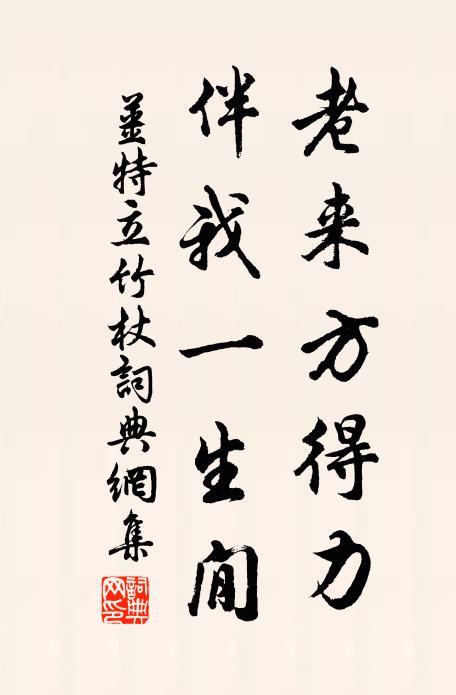 老来方得力
伴我一生閒
姜特立竹杖詞典網集
詞典网印